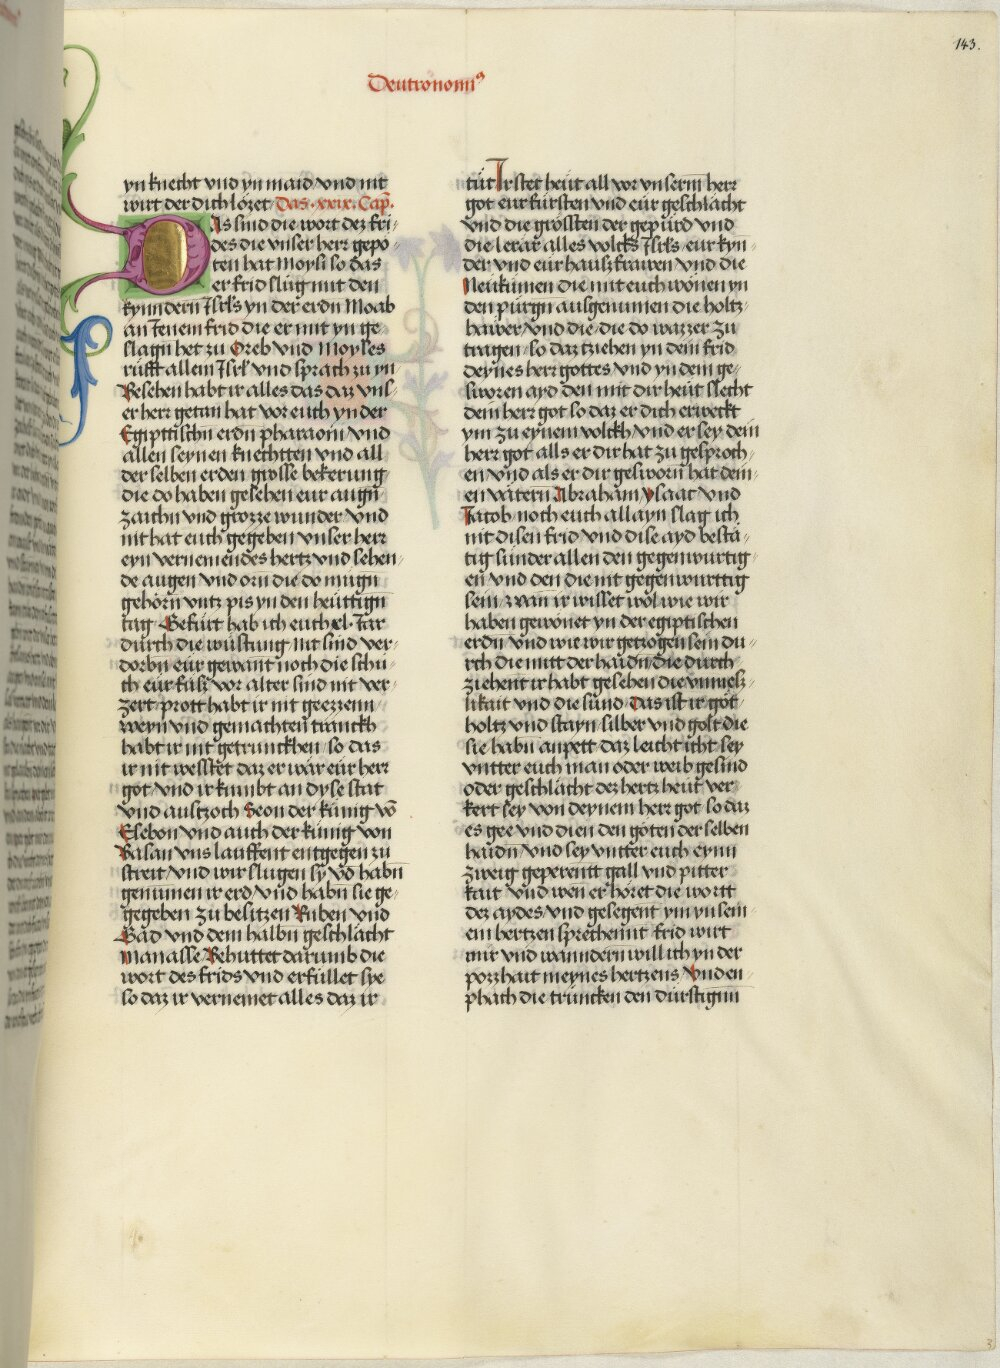 143.
Deutronomiꝰ
yn knecht vnd yn maid vnd nit
wirt der dich löret Das ·xxix· Cap̄.
DAs sind die wort dez fri⸗
des die vnser herr gepo⸗
ten hat Moysi so das
er frid slüg mit den
kynndern Isrl̃s yn der erdn Moab
an Ienem frid die er mit yn ge⸗
slagn̄ het zu Oreb vnd Moyses
rüfft allem Isrl̃ vnd sprach zu yn
Gesehen habt ir alles das daz vns⸗
er herr getan hat vor euch yn der
Egipttischn̄ erdn pharaoni vnd
allen seynen knechtten vnd all
der selben erden grosse bekerung
die do haben gesehen eur augn̄
zaichn̄ vnd grozze wunder vnd
nit hat euch gegeben vnser herr
eyn vernemendes hertz vnd sehen⸗
de augen vnd orn die do mügn̄
gehörn̄ vntz pis yn den heüttign̄
tag Gefürt hab ich euch xl· Iar
durch die wüstung Nit sind ver⸗
dorbn̄ eür gewant noch die schu⸗
ch eür füsz vor alter sind nit ver⸗
zert prott habt ir nit geezzenn
weyn vnd gemachten tranckh
habt ir nit getrunckhen so das
ir nit wesstet daz er wär eür herr
got vnd ir kumbt an dyse stat
vnd auszzoch Seon der künig vō
Esebon vnd auch der künig von
Basan vns lauffent entgegen zu
streit vnd wir slugen sy vn̄d habn̄
genumen ir erd vnd habn̄ sie ge⸗
gegeben zu besitzen Ruben vnd
Gad vnd dem halbn̄ geschlächt
Manasse Behuttet darumb die
wort des frids vnd erfüllet sye
so daz ir vernemet alles daz ir
tüt Ir stet heüt all vor vnserm herr
got eur fürsten vnd eür geschlächt
vnd die grössten der gepürd vnd
die lerär alles volcks Isrl̃s eur kyn⸗
der vnd eür hauszfrawen vnd die
Neukumen die mit euch wonen yn
den pürgn̄ ausgenumen die holtz⸗
hawer vnd die die do wazzer zu
tragen so daz tziehen yn dem frid
deynes herr gottes vnd yn dem ge⸗
sworen ayd den mit dir heüt slecht
dein herr got so daz er dich erweckt
ym zu eynem volckh vnd er sey dein
herr got alls er dir hat zu gesproch⸗
en vnd als er dir gesworn̄ hat dein⸗
en vätern Abraham ysaac vnd
Iacob noch euch allayn slag ich
mit disen frid vnd dise ayd bestä⸗
tig sünder allen den gegenwurtig⸗
en vnd den die nit gegenwurttig
sein wan ir wisset wol wie wir
haben gewonet yn der egiptischen
erdn̄ vnd wie wir getzogen sein du⸗
rch die mitt der haidn̄ die durch⸗
ziehent ir habt gesehen die vnmesz⸗
likait vnd die sünd Das ist ir göt⸗
holtz vnd stayn silber vnd golt die
sie habn̄ anpett daz leicht icht sey
vntter euch man oder weib gesind
oder geschlächt dez hertz heüt ver⸗
kert sey von deynem herr got so daz
es gee vnd dien den göten der selben
haidn̄ vnd sey vntter euch eynn
zweig geperentt gall vnd pitter⸗
kait vnd wen er höret die wortt
dez aydes vnd gesegent ym yn sein⸗
em hertzen sprechennt frid wirt
mir vnd wanndern will ich yn der
pozzhait meynes hertzens Vnd en⸗
phäch die truncken den dürstigenn